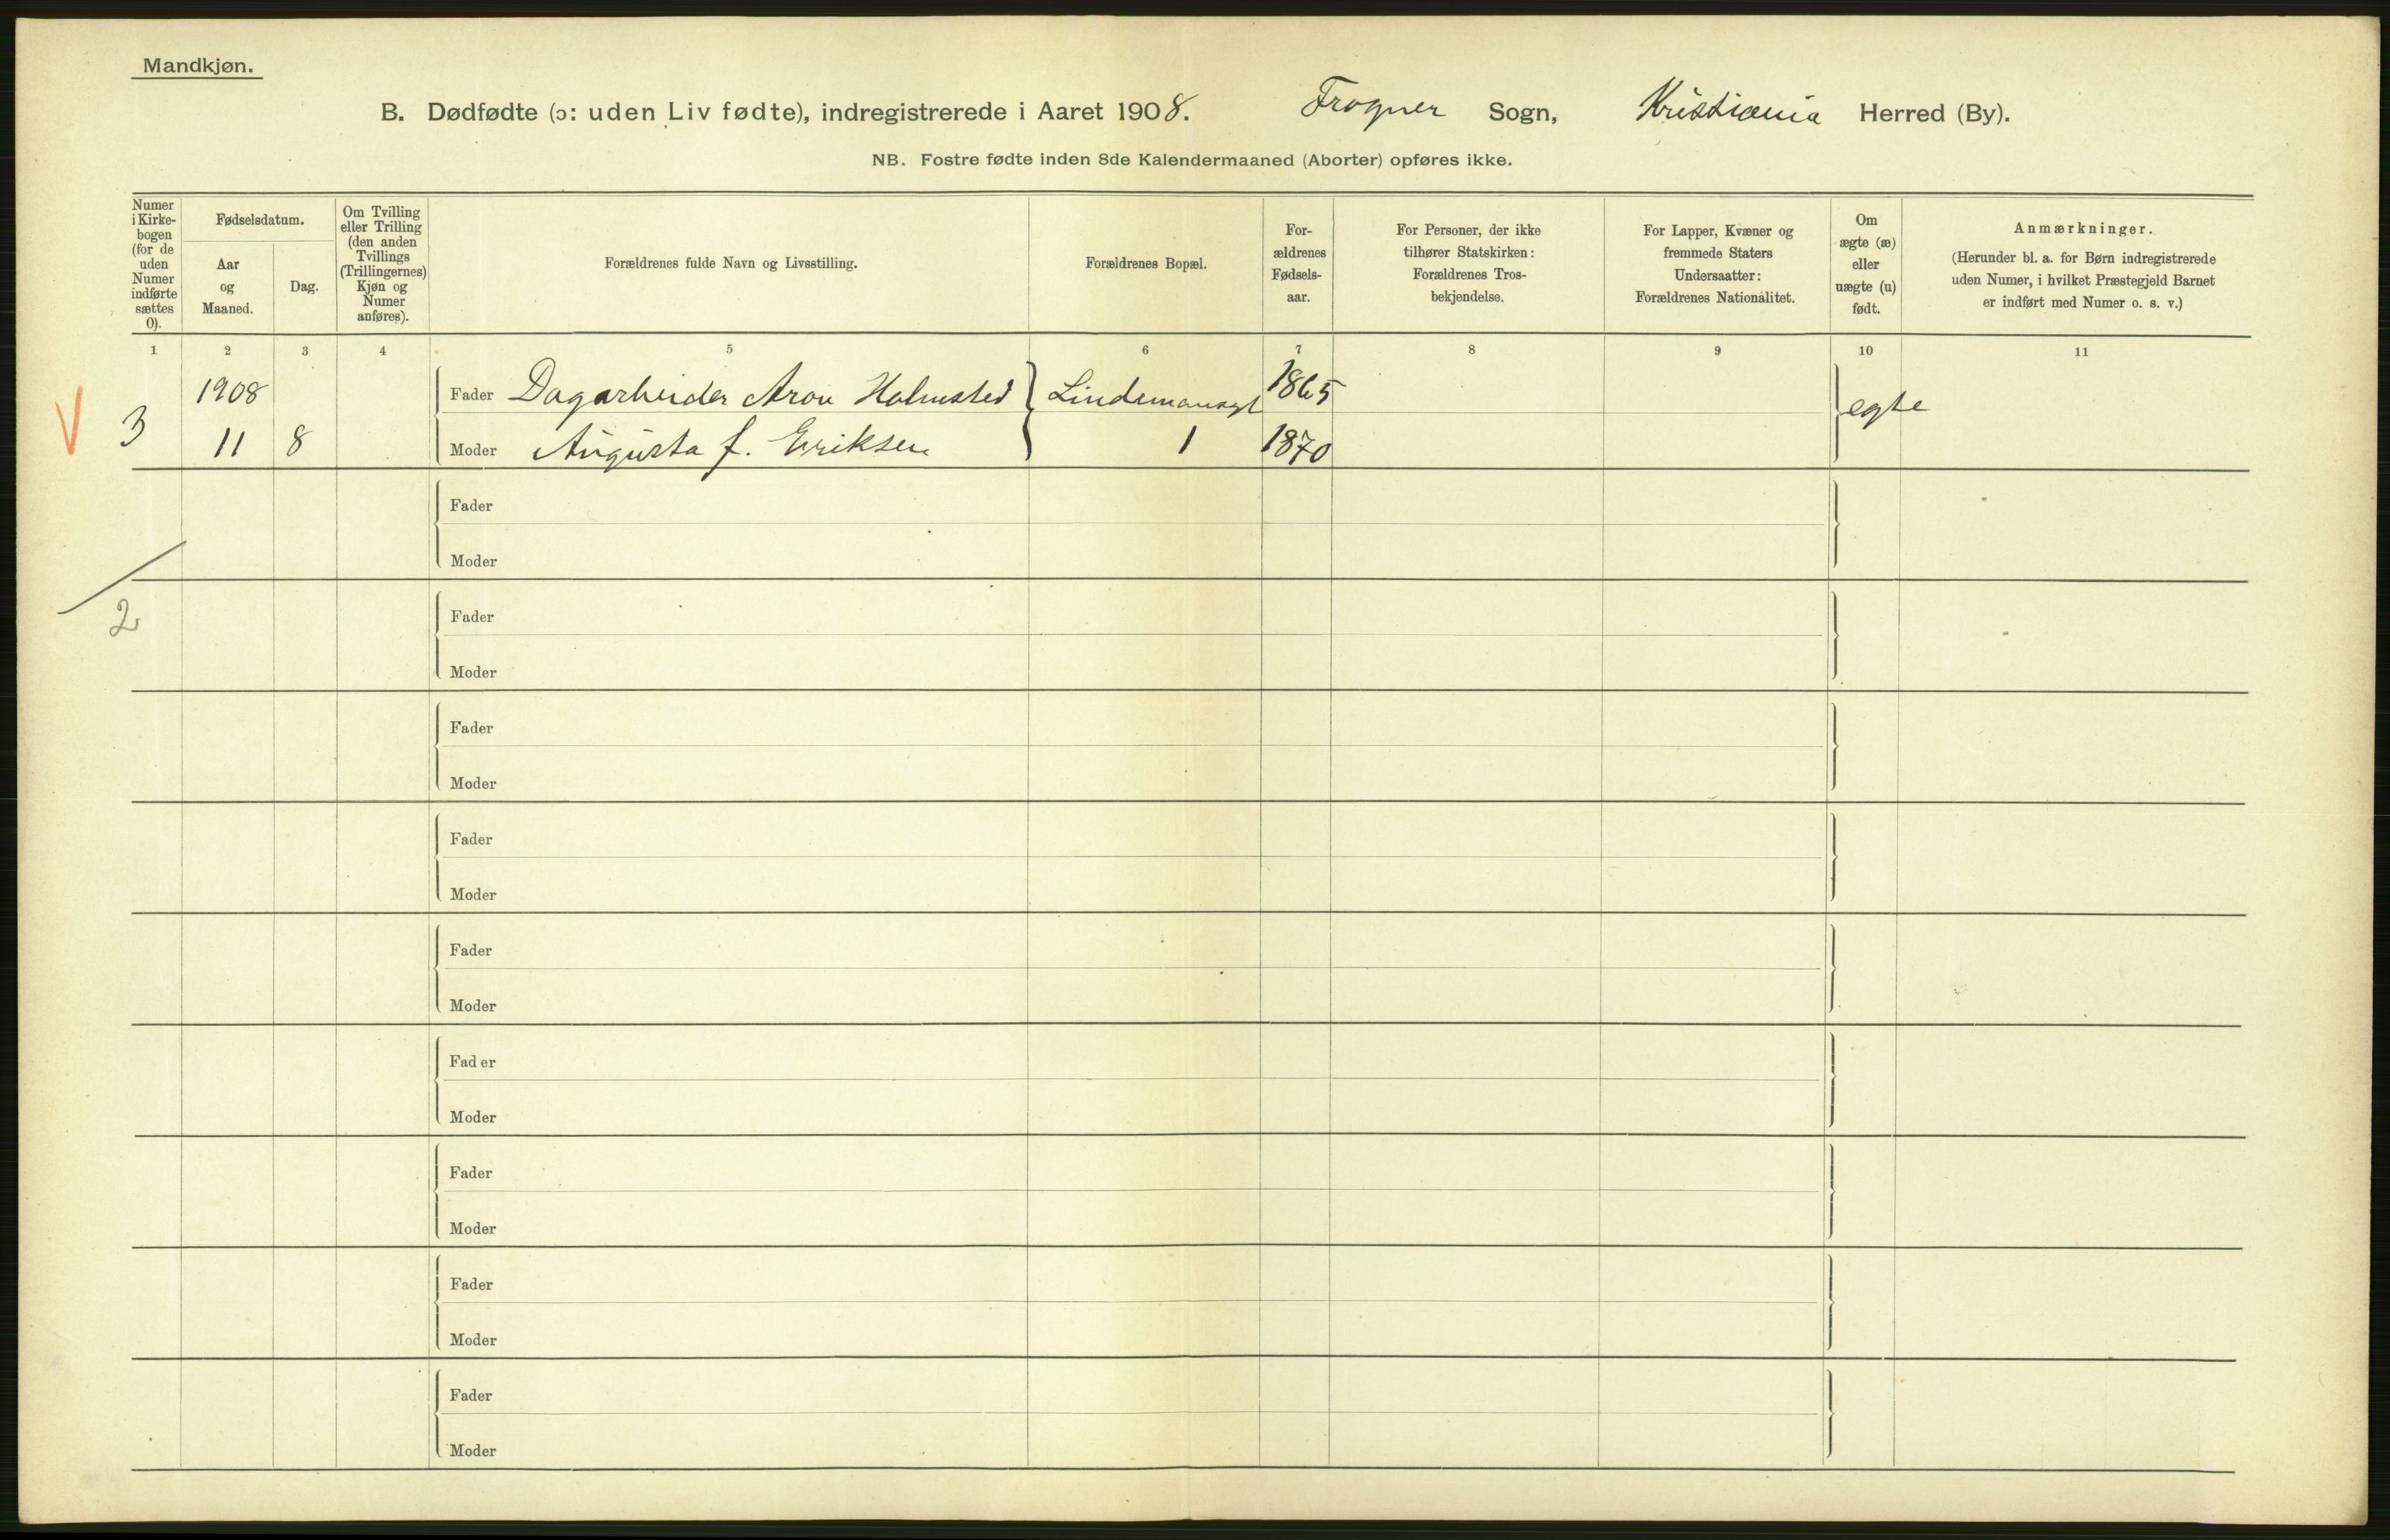 Mandkjøn.
B. Dødfødte (ɔ: uden Liv fødte), indregistrerede i Aaret 1908. Frogner Sogn, Kristiania Herred (By).
NB. Fostre fødte inden 8de Kalendermaaned (Aborter) opføres ikke.
Numer
i Kirke-
bogen
(for de
uden
Numer
indførte
sættes
0).
Fødselsdatum.
Aar
og
Maaned.
Dag.
Om Tvilling
eller Trilling
(den anden
Tvillings
(Trillingernes)
Kjøn og
Numer
anføres).
Forældrenes fulde Navn og Livsstilling.
Forældrenes Bopæl.
For-
ældrenes
Fødsels-
aar.
For Personer, der ikke
tilhører Statskirken:
Forældrenes Tros-
bekjendelse.
For Lapper, Kvæner og
fremmede Staters
Undersaatter:
Forældrenes Nationalitet.
Om
ægte (æ)
eller
uægte (u)
født.
Anmærkninger.
(Herunder bl. a. for Børn indregistrerede
uden Numer, i hvilket Præstegjeld Barnet
er indført med Numer o. s. v.)
1 2 3 4 5 6 7 8 9 10 11
1908 Fader Dagarbeider Aron Holmsted Lindemansgt 1865 egte
V 3 11 8 Moder Augusta f. Eriksen 1 1870
Fader
Moder
2
Fader
Moder
Fader
Moder
Fader
Moder
Fader
Moder
Fader
Moder
Fader
Moder
Fader
Moder
Fader
Moder